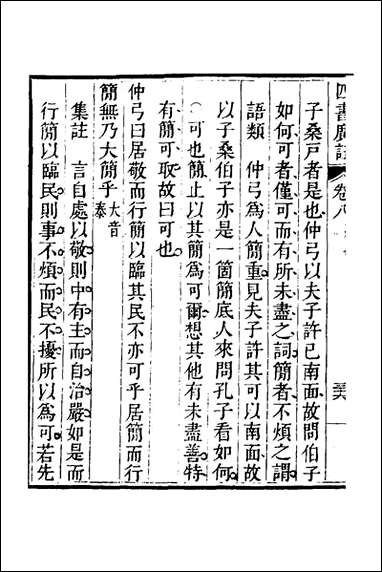 四書 卷八
子桑戶者是也仲弓以夫子許已南面故問伯子
如何可者僅可而有所未盡之詞簡者不煩之謂
語類　仲弓爲人簡重見夫子許其可以南面故
以子桑伯子亦是一箇簡底人來問孔子看如何
○可也簡止以其簡爲可爾想其他有未盡善特
有簡可取故曰可也
仲弓曰居敬而行簡以臨其民不亦可乎居簡而行
簡無乃大簡乎 大音泰
集註　言自處以敬則中有主而自治嚴如是而
行簡以臨民則事不煩而民不擾所以爲可若先